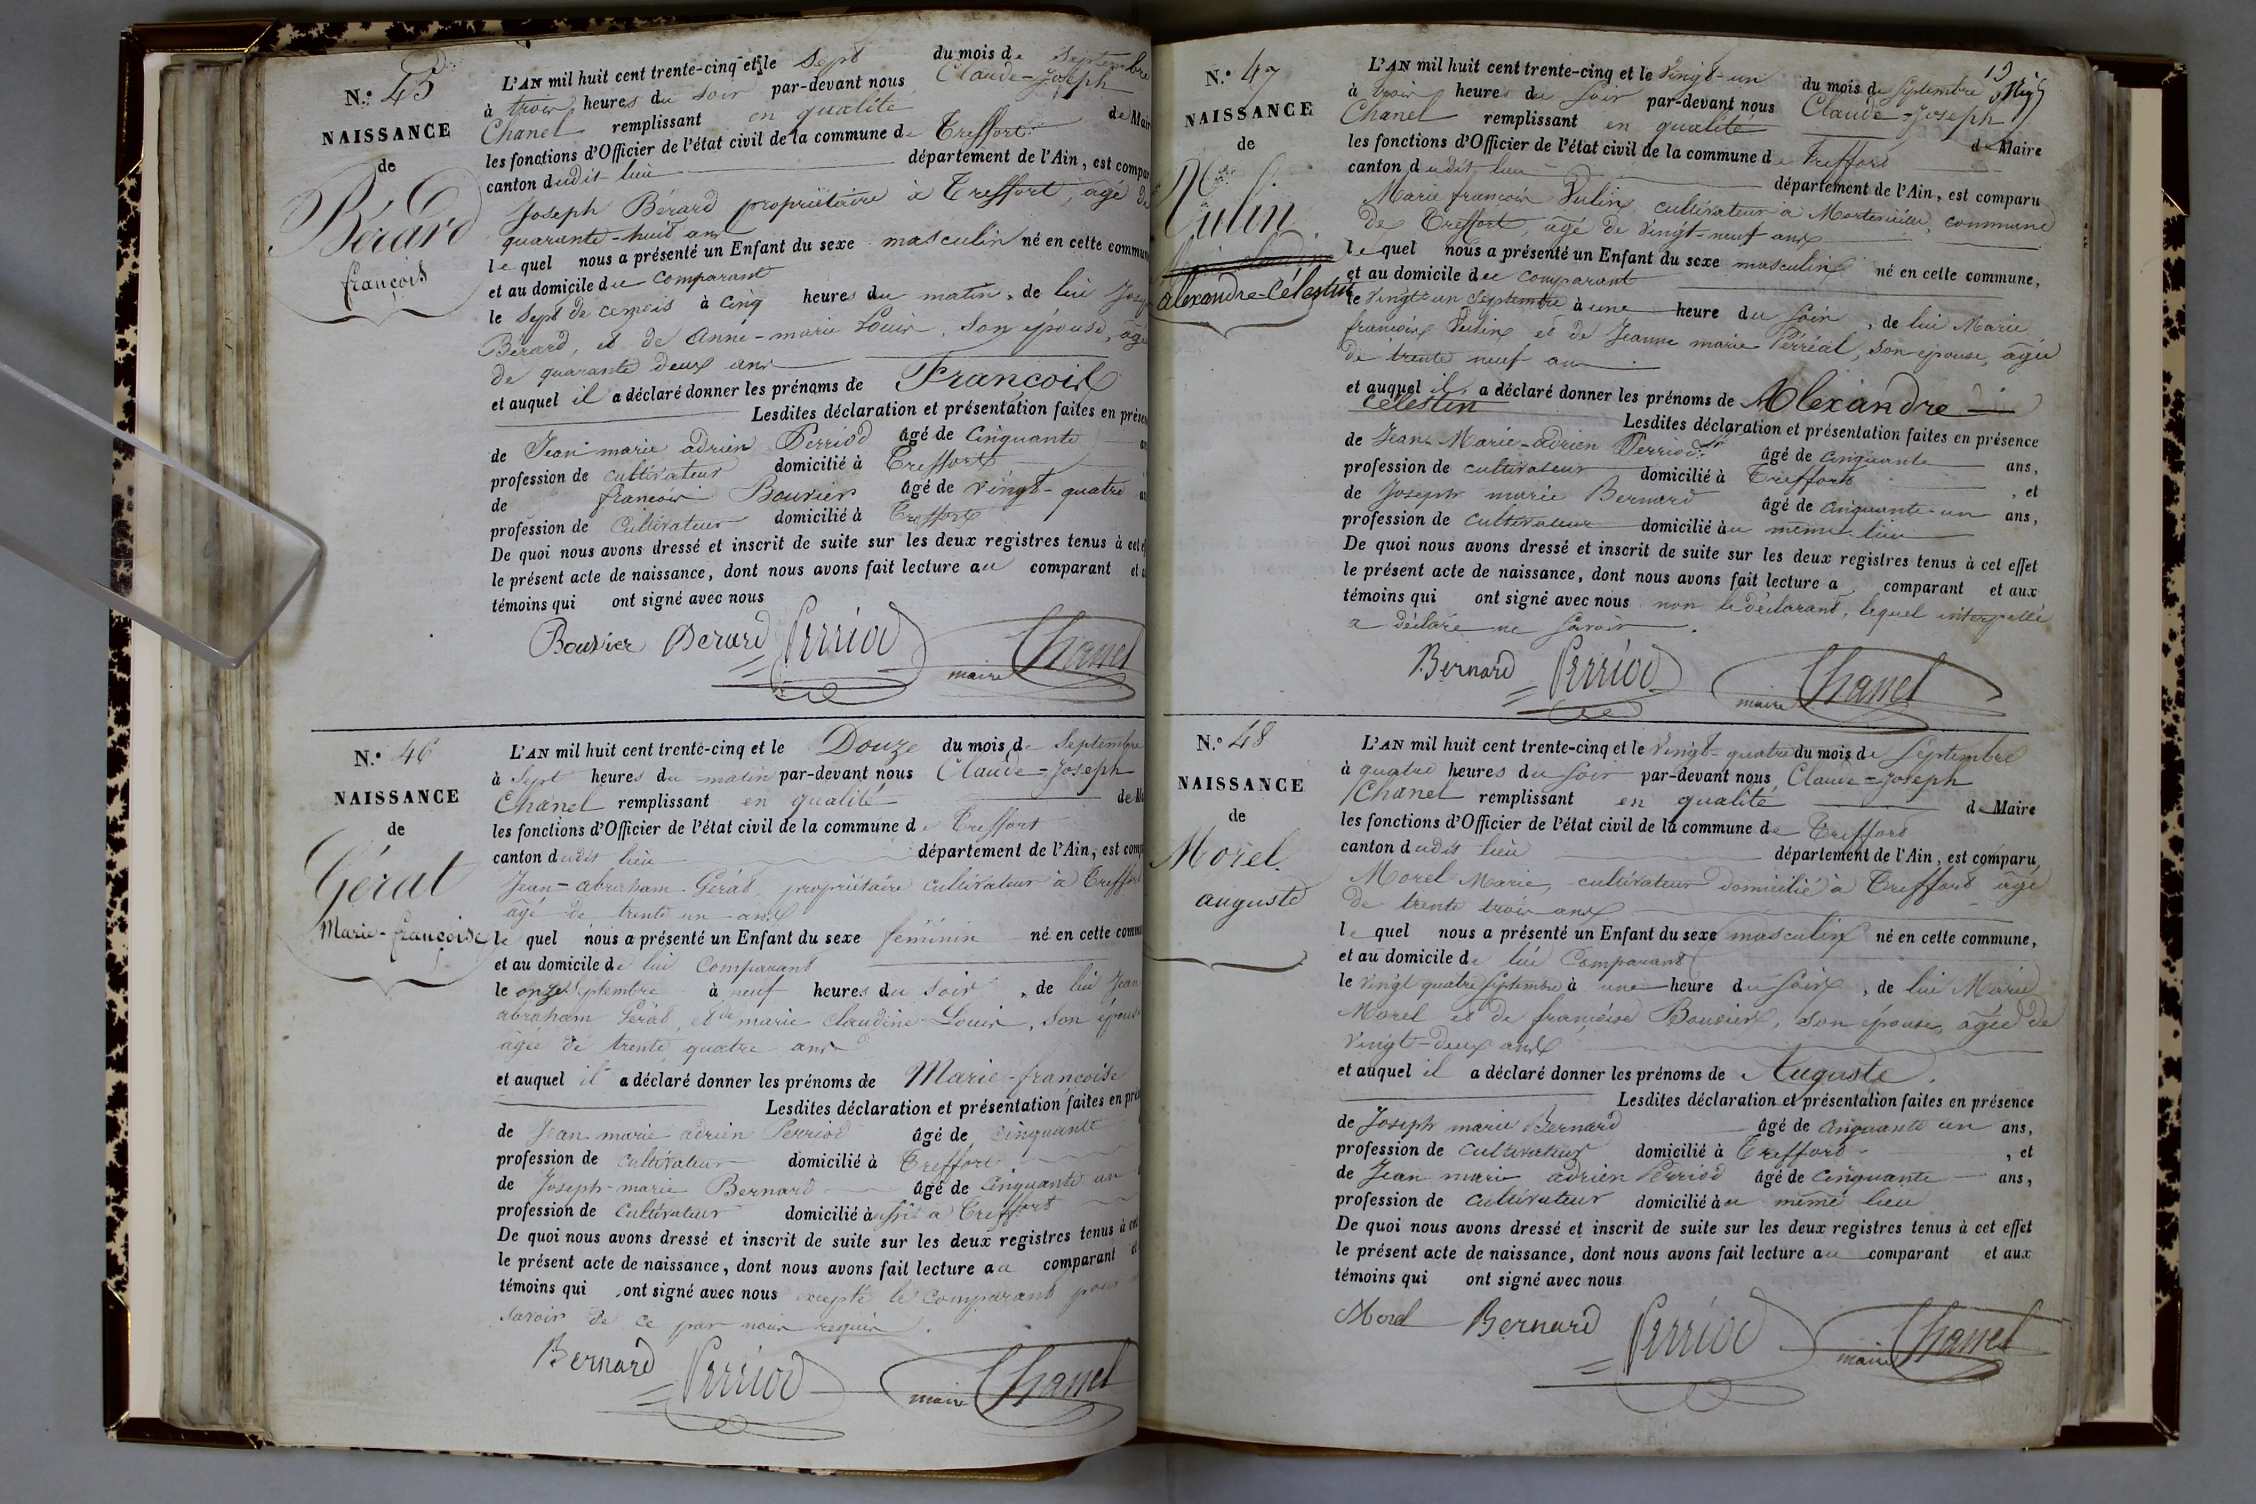 N.° 45
NAISSANCE
de
Bérard
françois
L'AN mil huit cent trente-cinq et le Sept du mois de Septembre
à trois heures du Soir par-devant nous Claude-Joseph
Chanel remplissant en qualité de Mair
les fonctions d'Officier de l'état civil de la commune de Treffort
canton dudit lieu département de l'Ain, est compar
Joseph Bérard propriétaire à Treffort, âgé de
quarante-huit ans
lequel nous a présenté un Enfant du sexe masculin né en cette commun
et au domicile du comparant
le Sept de ce mois à cinq heures du matin, de lui Josep
Bérard, et de Anne-marie Louis, son épouse, âgé
de quarante deux ans
et auquel il a déclaré donner les prénoms de François
Lesdites déclaration et présentation faites en présen
de Jean marie adrien Perriod âgé de Cinquante an
profession de cultivateur domicilié à Treffort
de françois Bouvier âgé de vingt-quatre an
profession de Cultivateur domicilié à Treffort
De quoi nous avons dressé et inscrit de suite sur les deux registres tenus à cet ef
le présent acte de naissance, dont nous avons fait lecture au comparant et a
témoins qui ont signé avec nous
Bouvier Berard Perriod maire Chanel
N.° 46
NAISSANCE
de
Gérat
Marie-françoise
L'AN mil huit cent trente-cinq et le Douze du mois de Septembre
à Sept heures du matin par-devant nous Claude-Joseph
Chanel remplissant en qualité de Ma
les fonctions d'Officier de l'état civil de la commune de Treffort
canton dudit lieu département de l'Ain, est comp
Jean-abraham Gérat, propriétaire cultivateur à Treffort
âgé de trente un ans
lequel nous a présenté un Enfant du sexe féminin né en cette comm
et au domicile de lui Comparant
le onze Septembre à neuf heures du soir, de lui Jean
abraham Gérat, et de marie Claudine Louis, son épouse
âgée de trente quatre ans
et auquel il a déclaré donner les prénoms de Marie-françoise
Lesdites déclaration et présentation faites en pré
de Jean marie adrien Perriod âgé de Cinquante
profession de cultivateur domicilié à Treffort
de Joseph-marie Bernard âgé de Cinquante un
profession de Cultivateur domicilié aussi à Treffort
De quoi nous avons dressé et inscrit de suite sur les deux registres tenus à cet
le présent acte de naissance, dont nous avons fait lecture au comparant et
témoins qui ont signé avec nous excepté le comparant pour
savoir de ce par nous requis.
Bernard Perriod maire Chanel
19
N.° 47
NAISSANCE
de
Vulin
alexandre-Célestin
L'AN mil huit cent trente-cinq et le Vingt-un du mois de Septembre
à trois heures du Soir par-devant nous Claude-Joseph
Chanel remplissant en qualité de Maire
les fonctions d'Officier de l'état civil de la commune de Treffort
canton dudit lieu département de l'Ain, est comparu
Marie françois Vulin cultivateur à Montenieux, commune
de Treffort, âgé de vingt-neuf ans
lequel nous a présenté un Enfant du sexe masculin né en cette commune,
et au domicile du comparant
le Vingt-un Septembre à une heure du Soir, de lui Marie
françois Vulin et de Jeanne marie Perréal, son épouse, âgée
de trente neuf ans
et auquel il a déclaré donner les prénoms de Alexandre
Célestin Lesdites déclaration et présentation faites en présence
de Jean-Marie-adrien Perriod âgé de Cinquante ans,
profession de cultivateur domicilié à Treffort, et
de Joseph marie Bernard âgé de cinquante-un ans,
profession de cultivateur domicilié au même lieu
De quoi nous avons dressé et inscrit de suite sur les deux registres tenus à cet effet
le présent acte de naissance, dont nous avons fait lecture a comparant et aux
témoins qui ont signé avec nous non le déclarant, lequel interpellé
a déclaré ne Savoir.
Bernard Perriod maire Chanel
N.° 48
NAISSANCE
de
Morel
auguste
L'AN mil huit cent trente-cinq et le Vingt-quatre du mois de Septembre
à quatre heures du Soir par-devant nous Claude-Joseph
Chanel remplissant en qualité de Maire
les fonctions d'Officier de l'état civil de la commune de Treffort
canton dudit lieu département de l'Ain, est comparu
Morel Marie, cultivateur domicilié à Treffort âgé
de trente trois ans
lequel nous a présenté un Enfant du sexe masculin né en cette commune,
et au domicile de lui Comparant
le vingt quatre Septembre à une heure du Soir, de lui Marie
Morel et de françoise Bouvier, son épouse, âgée de
vingt-deux ans
et auquel il a déclaré donner les prénoms de Auguste.
Lesdites déclaration et présentation faites en présence
de Joseph marie Bernard âgé de Cinquante un ans,
profession de cultivateur domicilié à Treffort, et
de Jean marie adrien Perriod âgé de Cinquante ans,
profession de cultivateur domicilié au même lieu
De quoi nous avons dressé et inscrit de suite sur les deux registres tenus à cet effet
le présent acte de naissance, dont nous avons fait lecture au comparant et aux
témoins qui ont signé avec nous
Morel Bernard Perriod maire Chanel